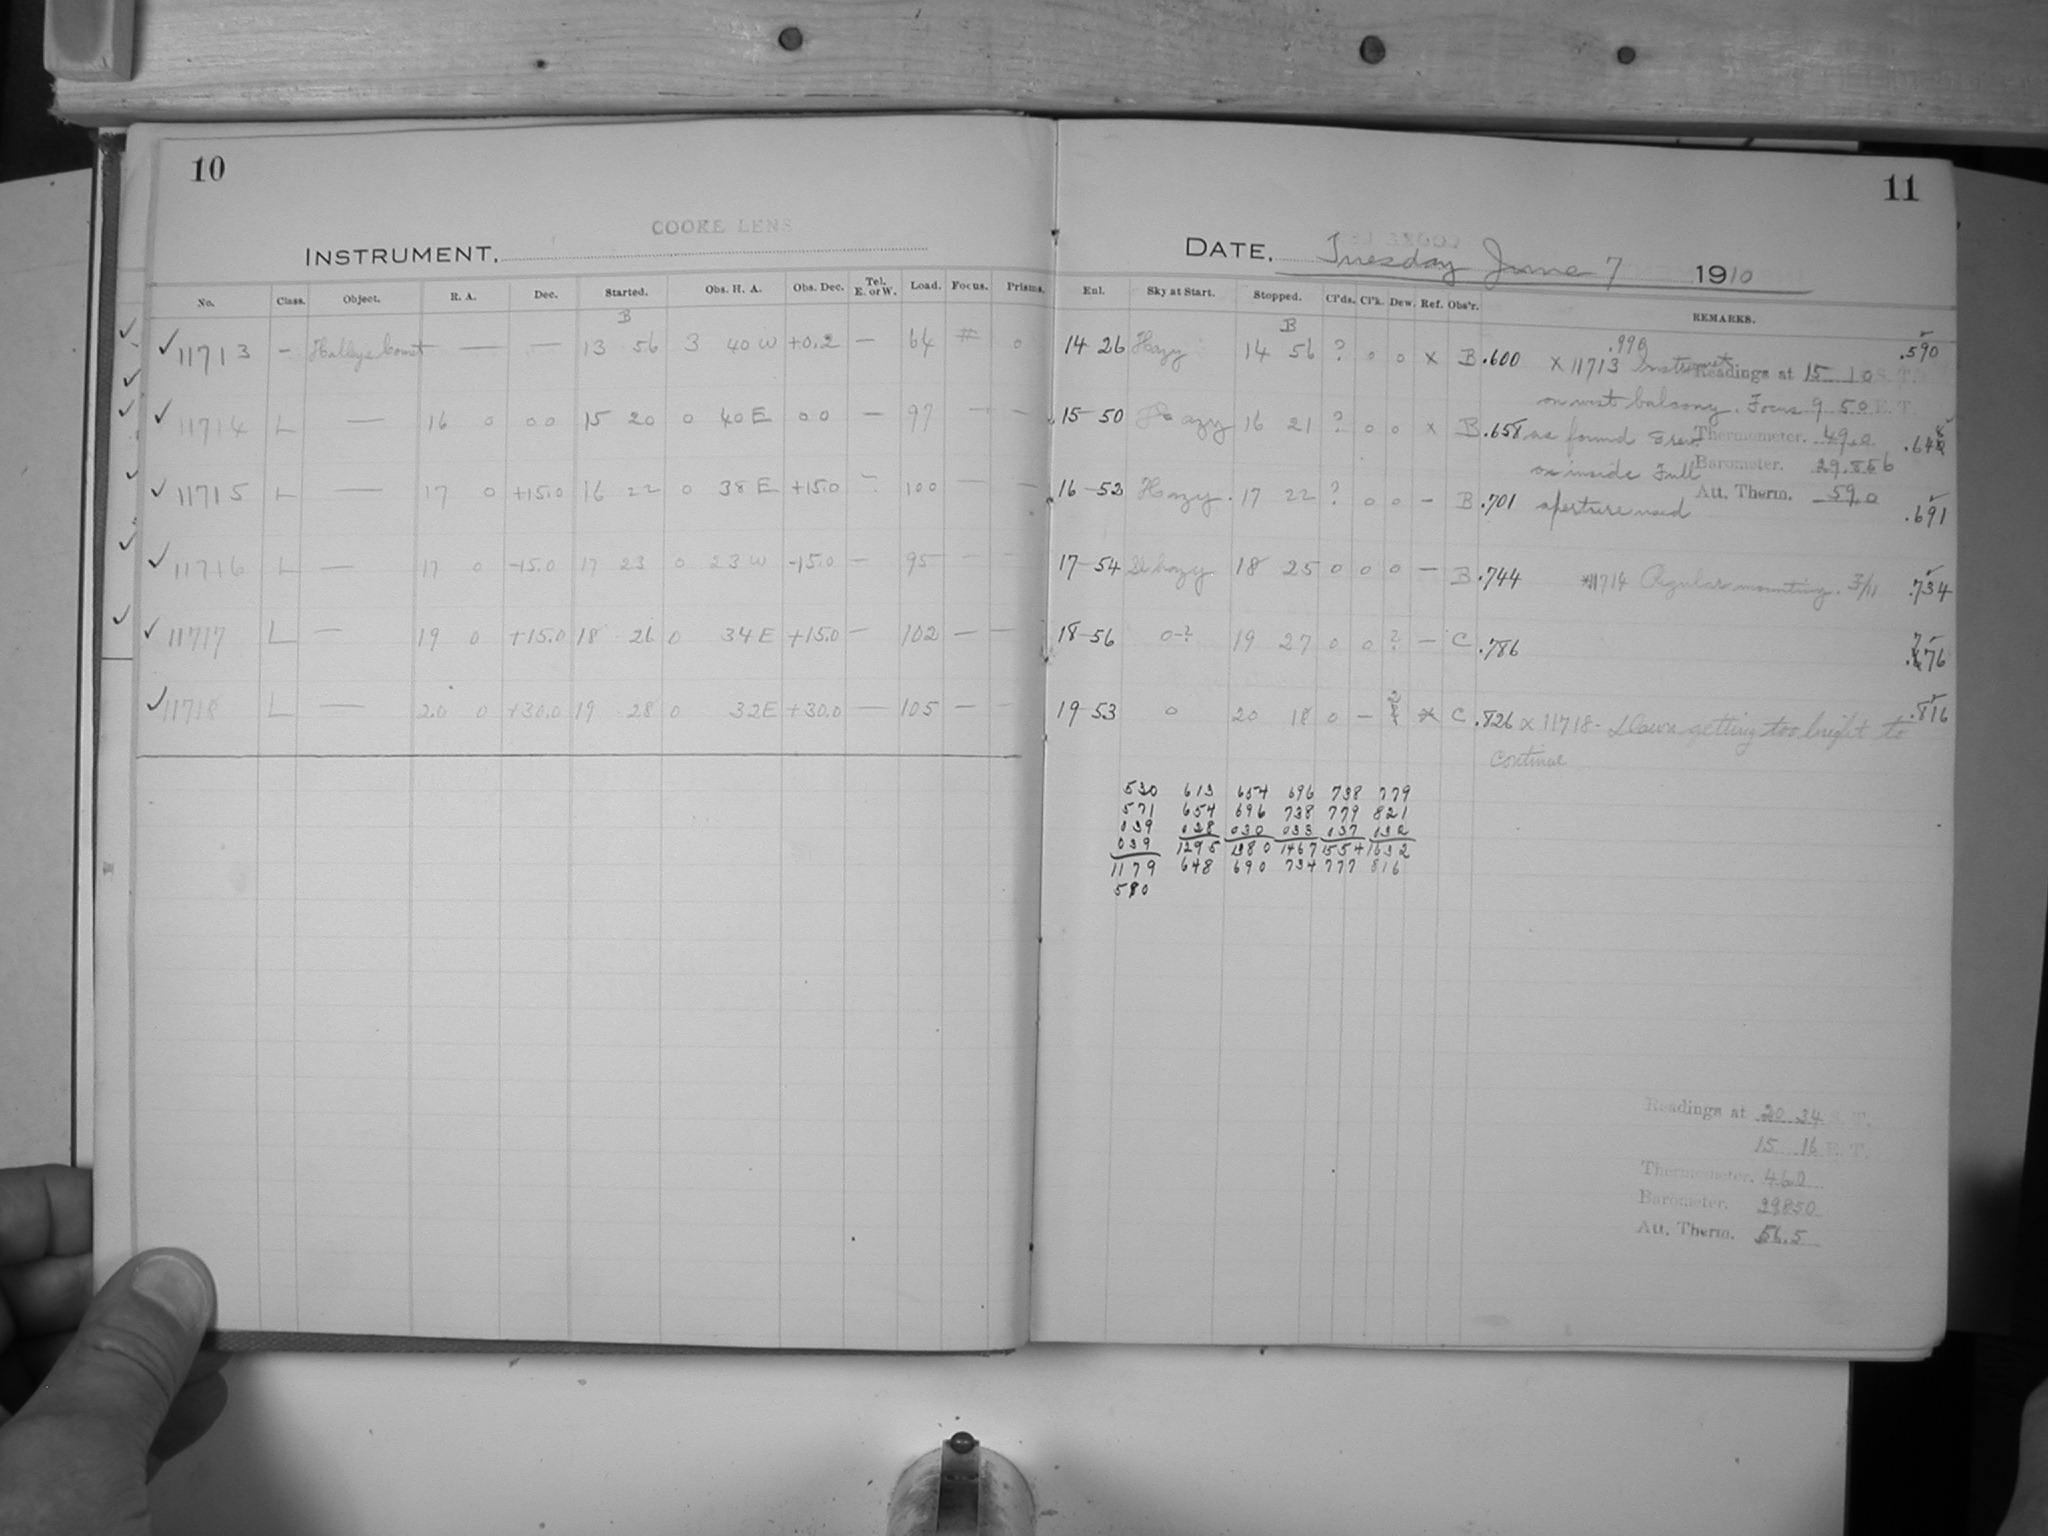 10
COOKE LENS
INSTRUMENT.
No. Class. Object. R. A. Dec. Started. Obs. H. A. Obs. Dec. Tel. E. or W. Load. Focus. Prisms.
B
11713 - Halleys Comet — — 13 56 3 40 W +0.2 — 64 # 0
11714 L — 16 0 0 0 15 20 0 40 E 0 0 — 97 — —
11715 L — 17 0 +15.0 16 22 0 38 E +15.0 — 100 — —
11716 L — 17 0 -15.0 17 23 0 23 W -15.0 — 95 — —
11717 L — 19 0 +15.0 18 26 0 34 E +15.0 — 102 — —
11718 L — 20 0 +30.0 19 28 0 32 E +30.0 — 105 — —
11
DATE. Tuesday June 7 1910
Enl. Sky at Start. Stopped. Cl'ds. Cl'k. Dew. Ref. Obs'r. REMARKS.
B
14 26 Hazy 14 56 ? 0 0 x B .600 x 11713 Instrument .590
Readings at 15 10 S. T.
on west balcony. Focus 9 50 E. T.
15-50 Hazy 16 21 ? 0 0 x B .658 as found
Thermometer. 49.0
on inside Full Barometer. 29.856
16-52 Hazy. 17 22 ? 0 0 - B .701 aperture used .691
Att. Therm. 59.0
17-54 Sl hazy 18 25 0 0 0 — B .744 *11714 Regular mounting. .734
18-56 0-? 19 27 0 0 ? — C .786 .776
19-53 0 20 18 0 — x C .826 x 11718- Dawn getting too bright to .816
continue
530 613 654 696 738 779
571 654 696 738 779 821
039 028 030 033 037 032
039 1295 1380 1467 1554 1632
1179 648 690 734 777 816
590
Readings at 20 34 S. T.
15 16 E. T.
Thermometer. 46.0
Barometer. 29850
Att. Therm. 56.5